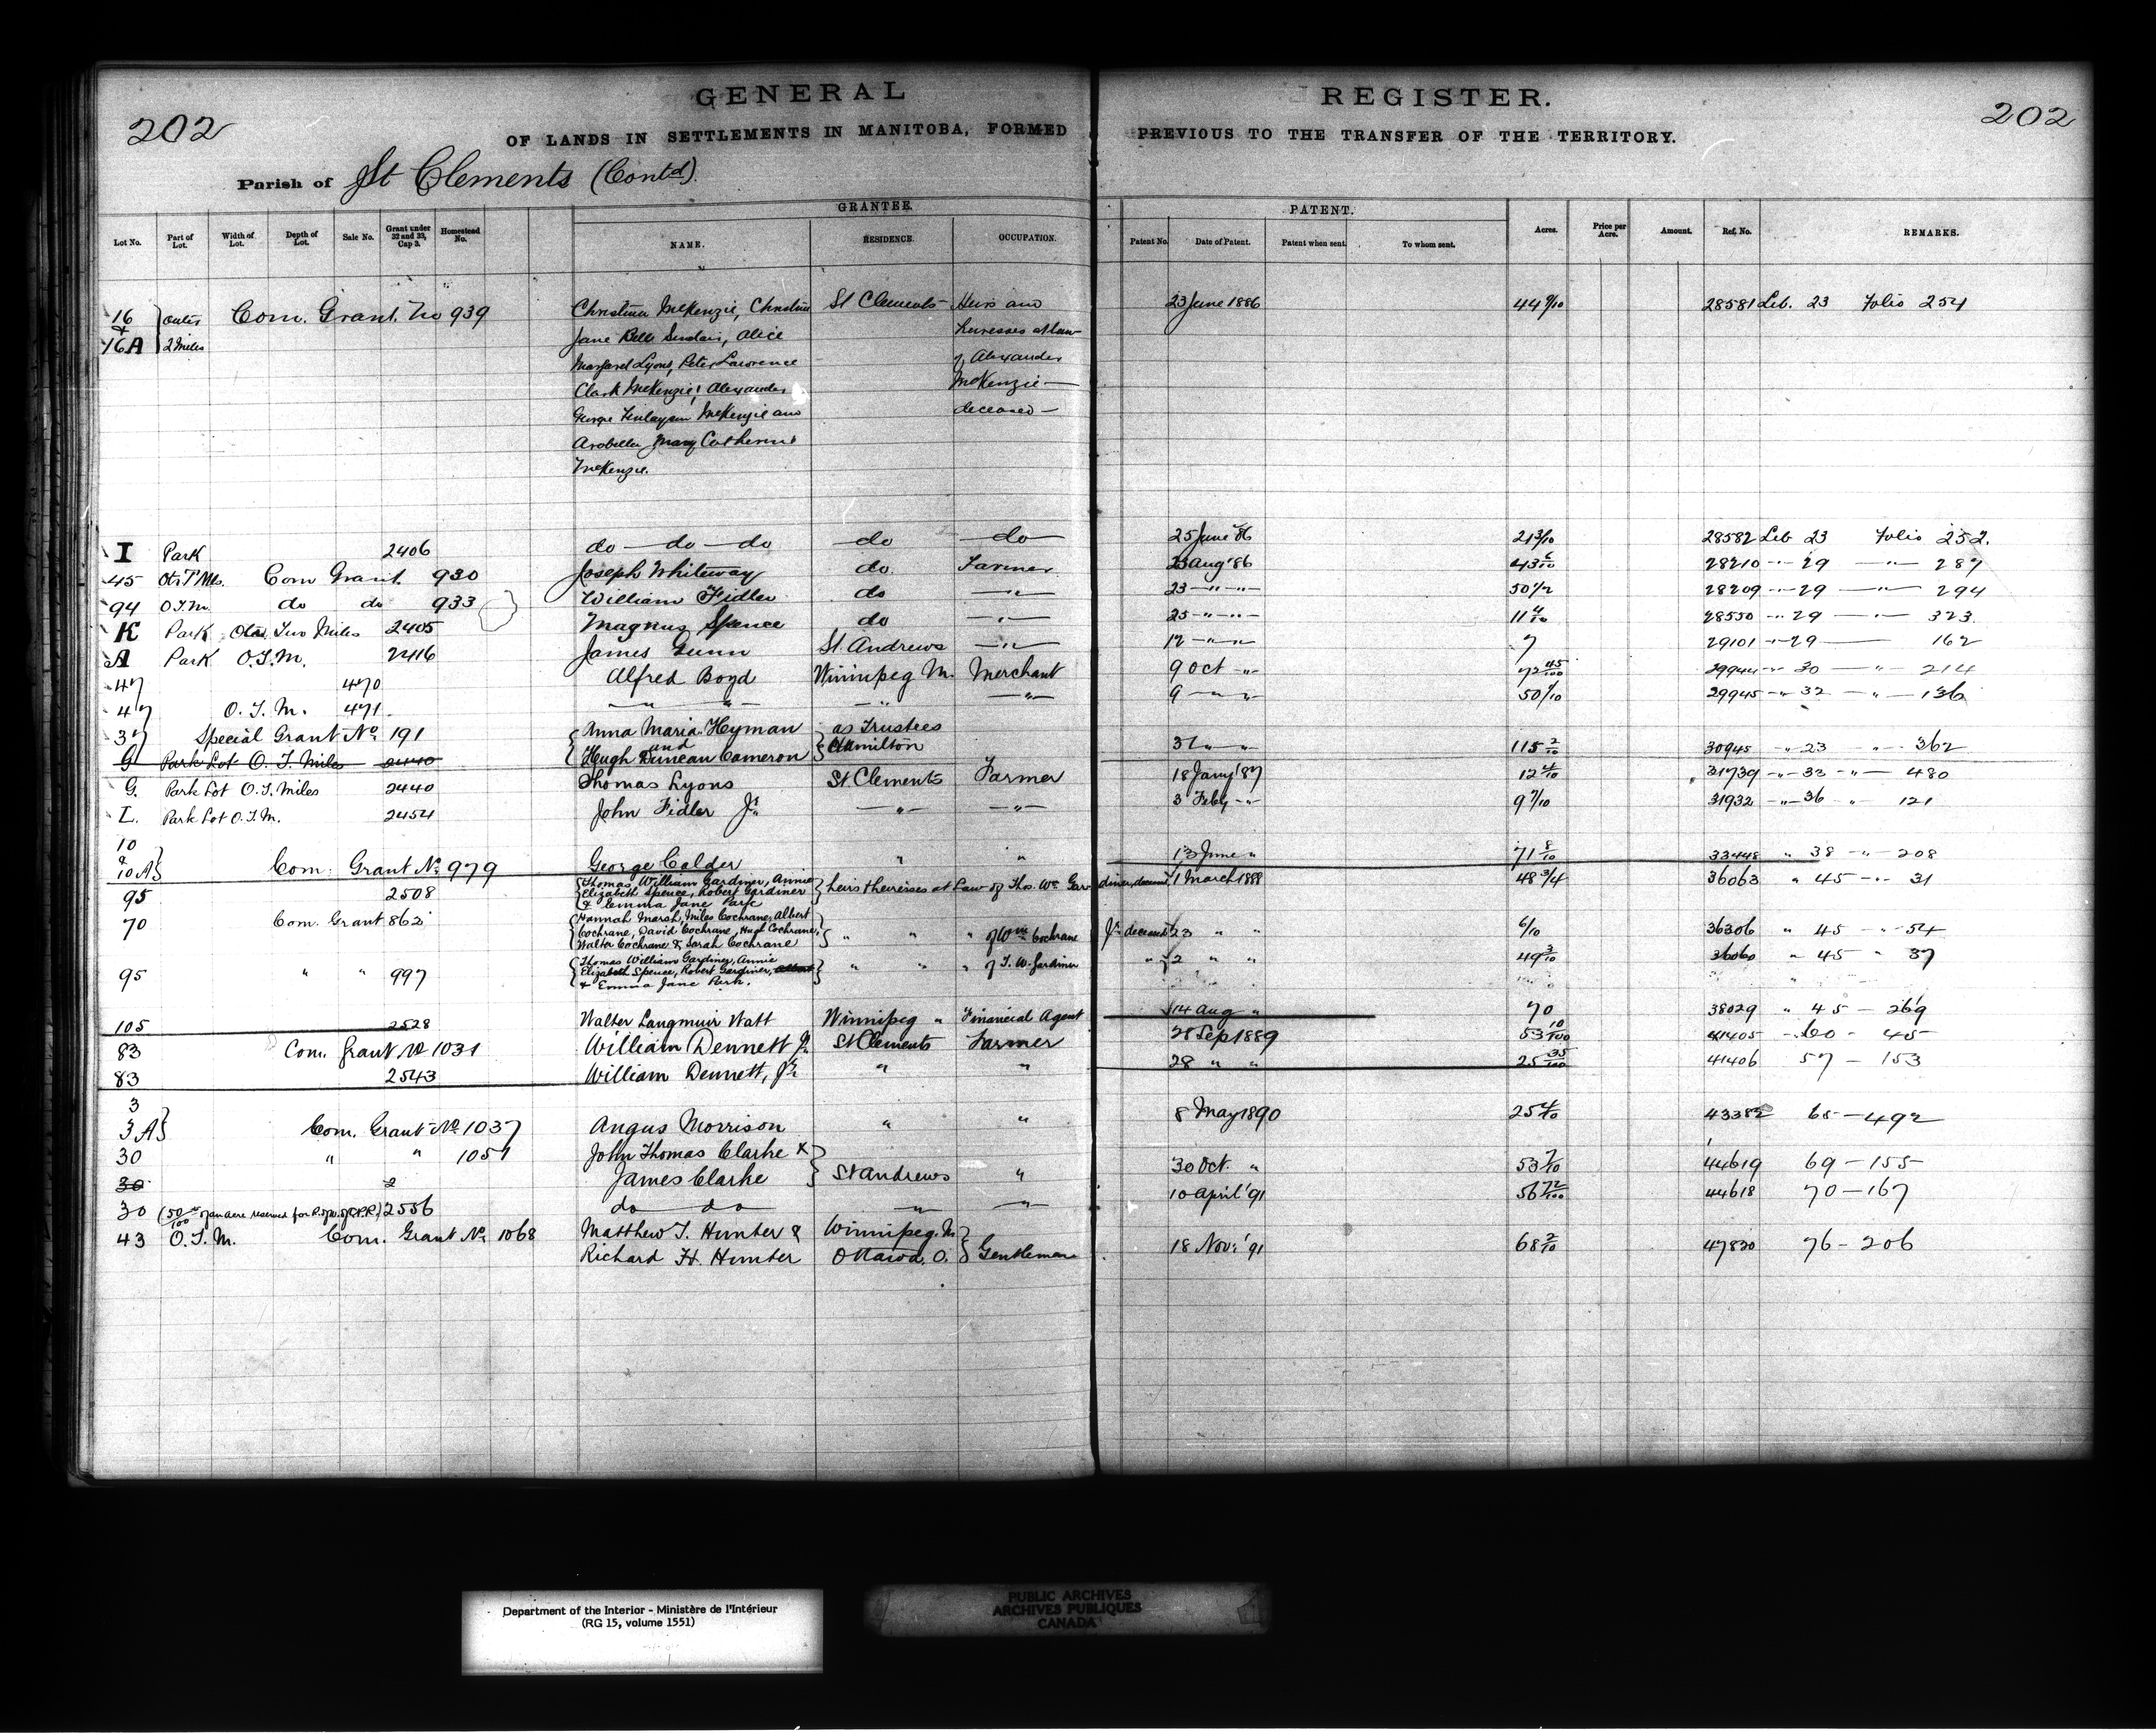 202
GENERAL REGISTER.
202
OF LANDS IN SETTLEMENTS IN MANITOBA, FORMED PREVIOUS TO THE TRANSFER OF THE TERRITORY.
Parish of St Clements (Contd)
GRANTEE. PATENT.
Lot No. Part of Lot. Width of Lot. Depth of Lot. Sale No. Grant under 32 and 33, Cap 3. Homestead No. NAME. RESIDENCE. OCCUPATION. Patent No. Date of Patent. Patent when sent. To whom sent. Acres. Price per Acre. Amount. Ref. No. REMARKS.
16 Outer Com. Grant. No 939 Christina McKenzie, Christina St Clements Heirs and 23 June 1886 44 9/10 28581 Lib. 23 Folio 254
& 16A 2 Miles Jane Bell Sinclair, Alice heiresses at law
Margaret Lyons, Peter Lawrence of Alexander
Clark McKenzie, Alexander McKenzie
George Finlayson McKenzie and deceased
Arabella Mary Catherine
McKenzie.
I Park 2406 do do do do do 25 June '86 21 3/10 28582 Lib 23 Folio 252.
45 Otr T Mls. Com Grant 930 Joseph Whiteway do. Farmer 23 Aug '86 43 28210 " 29 " 287
94 O.T.M. do do 933 William Fidler do " 23 " " 50 1/2 28209 " 29 " 294
K Park Otr Two Miles 2405 Magnus Spence do " 25 " " 11 4/10 28550 " 29 " 323
A Park O.T.M. 2416 James Gunn St. Andrews " 12 " " 7 29101 " 29 162
47 470 Alfred Boyd Winnipeg M. Merchant 9 Oct " 72 45/100 29944 " 30 " 214
47 O.T.M. 471 " " " " 9 " " 50 1/10 29945 " 32 " 136
37 Special Grant No. 191 Anna Maria Hyman as Trustees
and
G Park Lot O.T. Miles 2440 Hugh Duncan Cameron Hamilton 31 " " 115 2/10 30945 " 23 " 362
G. Park Lot O.T. Miles 2440 Thomas Lyons St Clements Farmer 18 Jany '87 12 4/10 31739 " 33 " 480
L. Park Lot O.T.M. 2454 John Fidler Jr. " " 3 Feby " 9 7/10 31932 " 36 " 121
10
& 10A Com. Grant No. 979 George Calder " " 13 June " 71 8/10 33448 " 38 " 208
95 2508 Thomas William Gardiner, Annie heirs & heiresses at Law of Thos. Wm Gardiner, deceased 1 March 1888 48 3/4 36063 " 45 " 31
Elizabeth Spence, Robert Gardiner
& Emma Jane Park
70 Com. Grant 862 Hannah Marsh, Miles Cochrane, Albert
Cochrane, David Cochrane, Hugh Cochrane, " " " of Wm Cochrane Jr. deceased 23 " " 6/10 36306 " 45 " 54
Walter Cochrane & Sarah Cochrane
95 " " 997 Thomas William Gardiner, Annie
Elizabeth Spence, Robert Gardiner, " " " of T.W. Gardiner " 2 " " 49 3/10 36060 " 45 " 37
& Emma Jane Park.
105 2528 Walter Langmuir Watt Winnipeg " Financial Agent 14 Aug " 70 38029 " 45 - 269
83 Com. Grant No 1031 William Dennett Jr. St Clements Farmer 28 Sep 1889 53 10/100 41405 - 60 - 45
83 2543 William Dennett, Jr. " " 28 " " 25 35/100 41406 57 - 153
3
3A Com. Grant No. 1037 Angus Morrison " " 8 May 1890 25 4/10 43382 65 - 492
30 " " 1051 John Thomas Clarke &
30 2 James Clarke St Andrews " 30 Oct. " 53 7/10 44619 69 - 155
30 (50/100 of an acre reserved for R. of W. of C.P.R.) 2556 do do " " 10 April '91 56 72/100 44618 70 - 167
43 O.T.M. Com. Grant No. 1068 Matthew T. Hunter & Winnipeg. M
Richard H. Hunter Ottawa, O. Gentlemen 18 Nov. '91 68 2/10 47830 76 - 206
Department of the Interior - Ministère de l'Intérieur
(RG 15, volume 1551)
PUBLIC ARCHIVES
ARCHIVES PUBLIQUES
CANADA